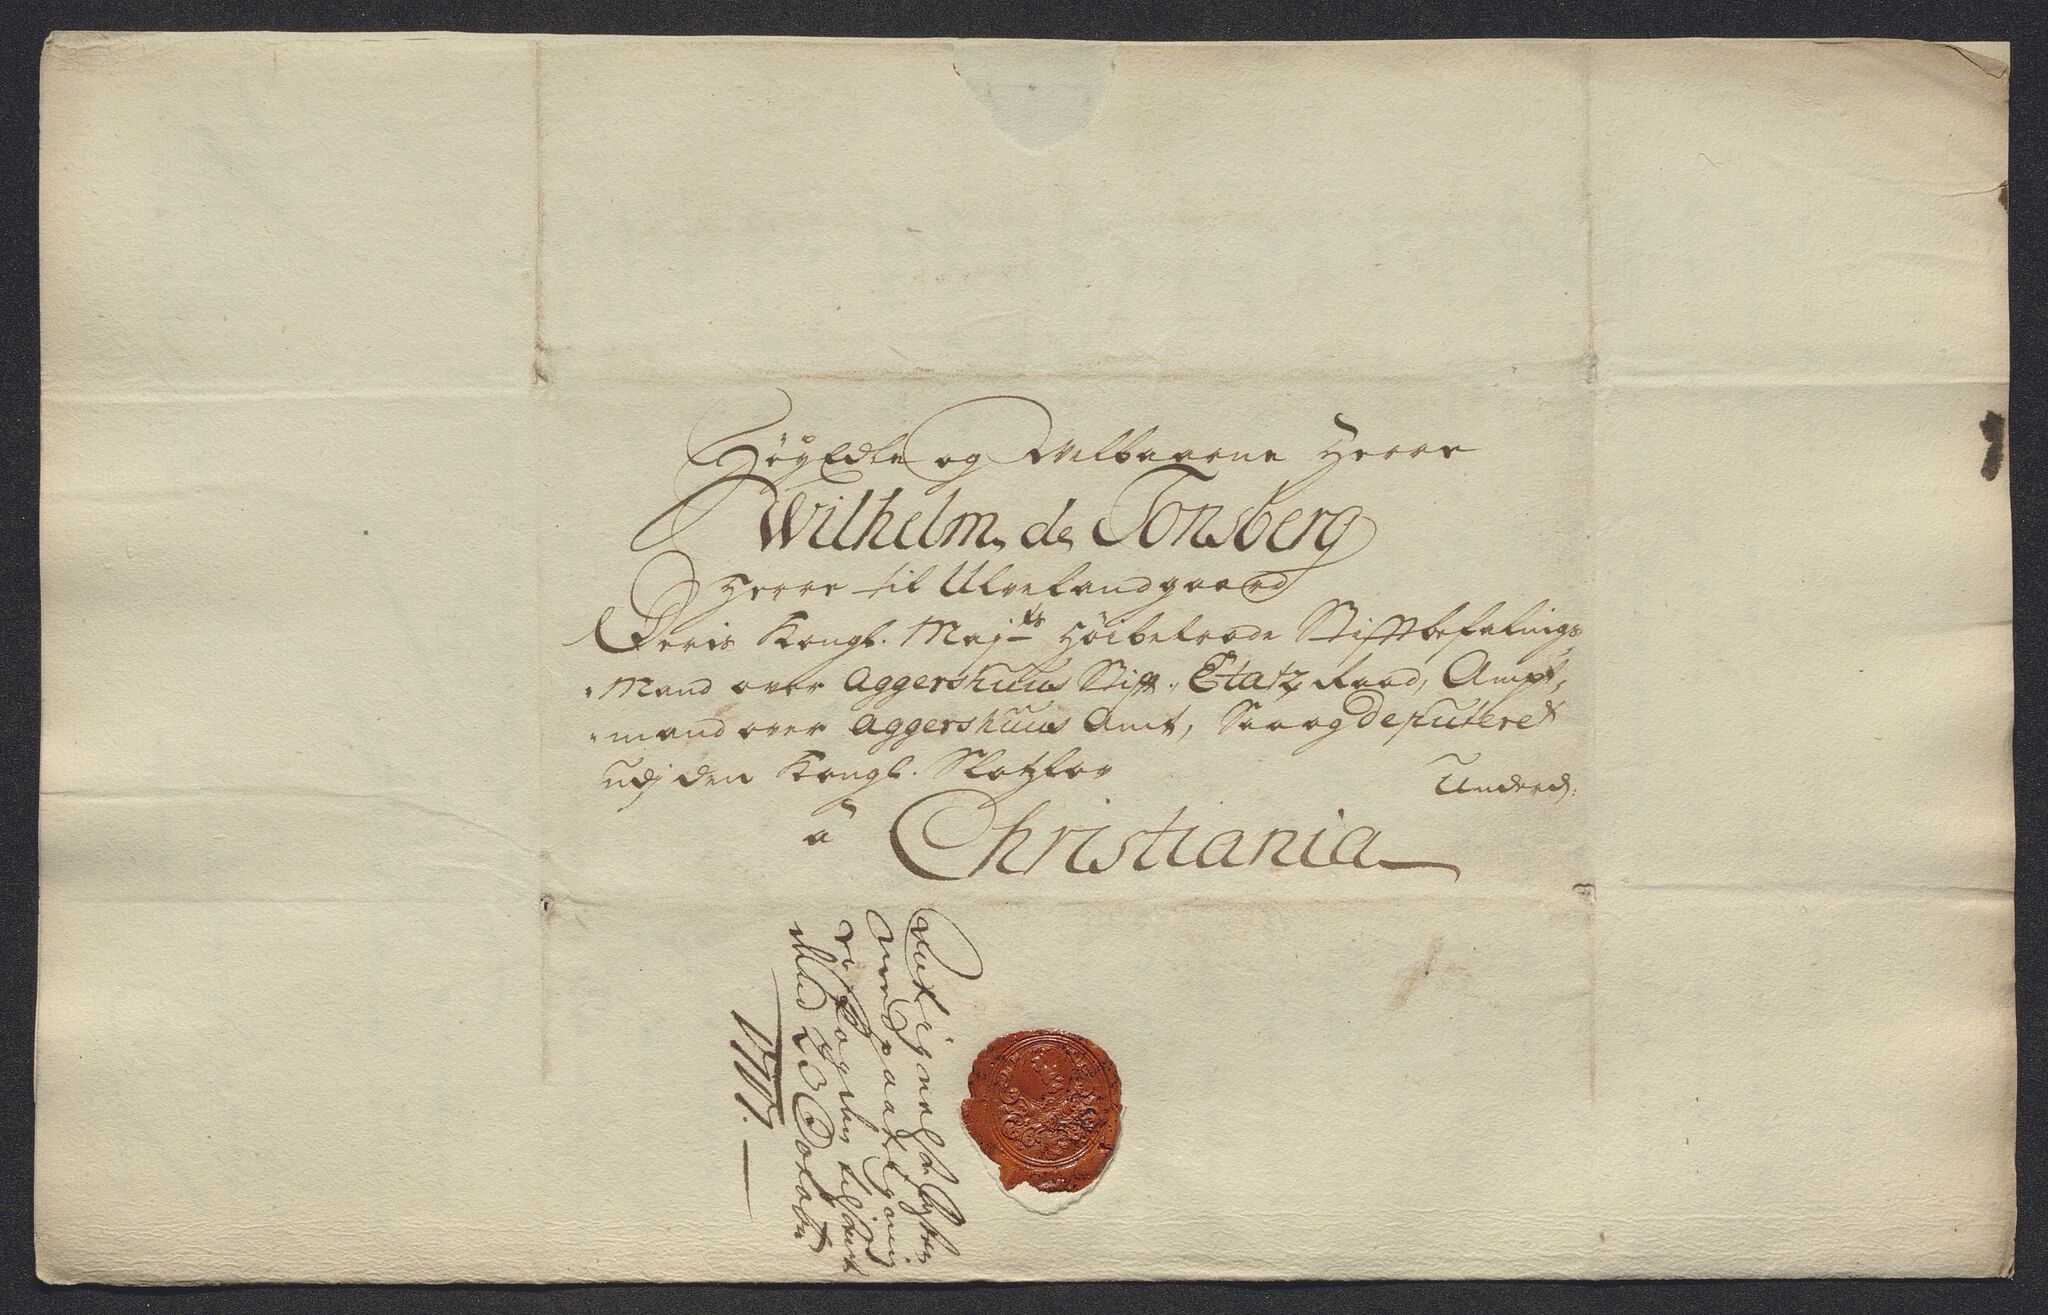 HöyEdle og Welbaarne Herre
Wilhelm de Tonsberg
Herre til Ulvelandgaard
Deris Kongl. Maj.ts Höibetrode Stiftbefalings
Mand over Aggershuus Stift, Etatz Raad, Ampt,
mand over Aggershuus Amt, Saa og Deputeret
udj den Kongl. Slotzlov
Underd:
a
Christiania
med paategning
Fogden
med 23
1707.